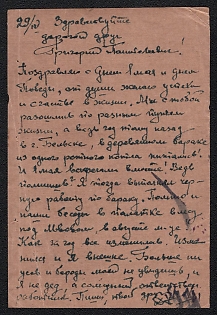 29/IV Здравствуйте
дорогой друг
Григорий
Поздравляю с Днем 1 мая и днем
Победы, от души желаю успеха
и счастья в жизни. Мы с тобой
разошлись по разным путям
жизни, а ведь год тому назад
в г. Бельске, в деревянном бараке
из одного ротного котла питались.
И 1 мая встречали вместе. Ведь
помнишь? Я тогда выполнял чер-
ную работу по бараку. Помню и
наши беседы в палатке в лесу
под Львовом, в августе м-це.
Как за год все изменилось. Изме-
нился и я внешне. Больше ни
усов и бороды моей не увидишь, и
я не дед, а солидный ответствен.
работник. Пиши, твой друг